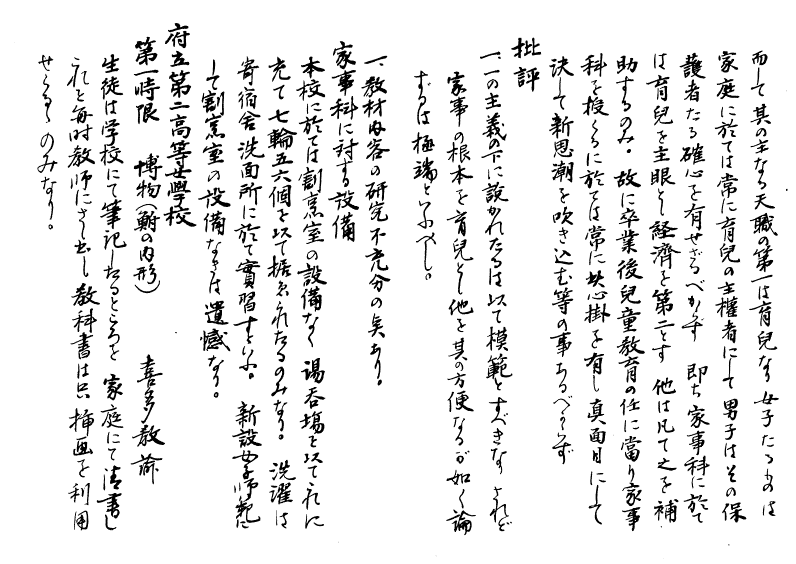 而して其の主なる天職の第一は育兒なり 女子たるものは
家庭に於ては常に育兒の主權者にして男子はその保
護者たる確心を有せざるべからず 即ち家事科に於て
は育兒を主眼とし経濟を第二とす 他は凡て之を補
助するのみ。故に卒業後兒童教育の任に當り家事
科を授くるに於ては常に此心掛を有し真面目にして
決して新思潮を吹き込む等の事あるべからず
批評
一、一の主義の下に説かれたるは以て模範とすべきなり されど
家事の根本を育兒とし他を其の方便なるが如く論
ずるは極端といふべし。
一、教材内容の研究不充分の矣あり。
家事科に対する設備
本校に於ては割烹室の設備なく 湯呑場を以てこれに
充て七輪五六個を以て据ゑられたるのみなり。洗濯は
寄宿舎洗面所に於て實習すといふ。 新設女子師範に
して割烹室の設備なきは遺憾なり。
府立第二高等女學校
第一時限 博物(鮒の内形) 喜多教諭
生徒は学校にて筆記したるところを 家庭にて清書し
これを毎時教師にさし出し教科書は只 挿画を利用
せらるゝのみなり。